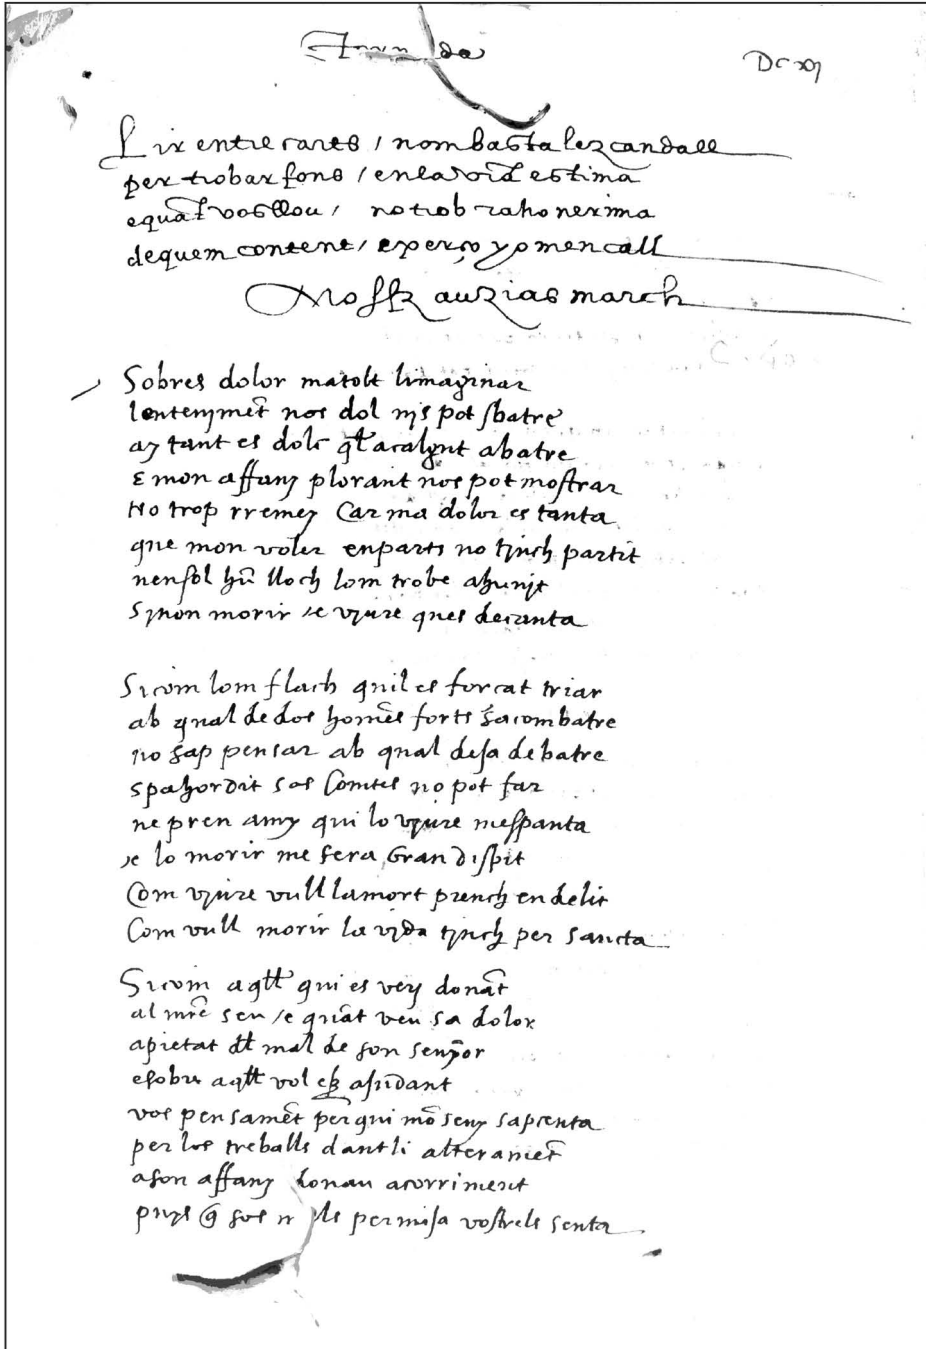 Tornada
DC xj
Lir entre carts / nom basta lezcandall
per trobar fons / en la vra estima
e quãt vos llou / no trob raho ne rima
de quem content / e per ço yo men call
Mossẽ auzias march
Sobres dolor matolt limaginar
lentenjmẽt nos dol njs pot sbatre
aj tant es dolç q̃ll acalgut abatre
E mon affanj plorant nos pot mostrar
No trop rremej Car ma dolor es tanta
que mon voler enparts no tjnch partit
nensol hũ lloch lom trobe ahunjt
Sjnon morir /e vjure ques decanta
Si com lom flach quil es forcat triar
ab qual de dos homẽs forts sacombatre
no sap pensar ab qual desa debatre
spahordit sos Comtes no pot far
ne pren amj qui lo vjure mespanta
/e lo morir me sera Gran dispit
Com vjure vull la mort prench en delit
Com vull morir la vjda tjnch per sancta
Si com aq̃ll qui es vej donãt
al mẽ seu /e quãt veu sa dolor
apietat dl mal de son senyor
e sobre aq̃ll vol eser ajudant
vos pensamẽt per qui mõ senj sapienta
per los treballs dantli alteramẽt
a son affanj donau acorriment
pujs q̃ sos ls permisa vostrels senta